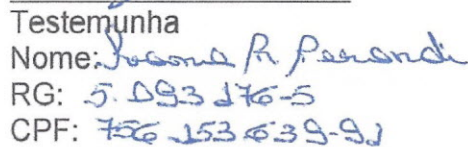 Testemunha
Nome: Joana R Perandi
RG: 5.093 176-5
CPF: 756 153 639-91